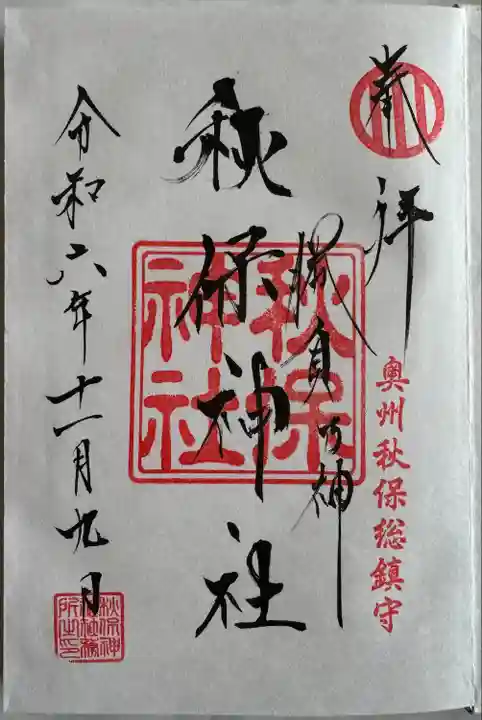 奉拝
奥州秋保総鎮守
勝負の神
秋保神社
秋保神社
令和六年十一月九日
秋保神社務所之印